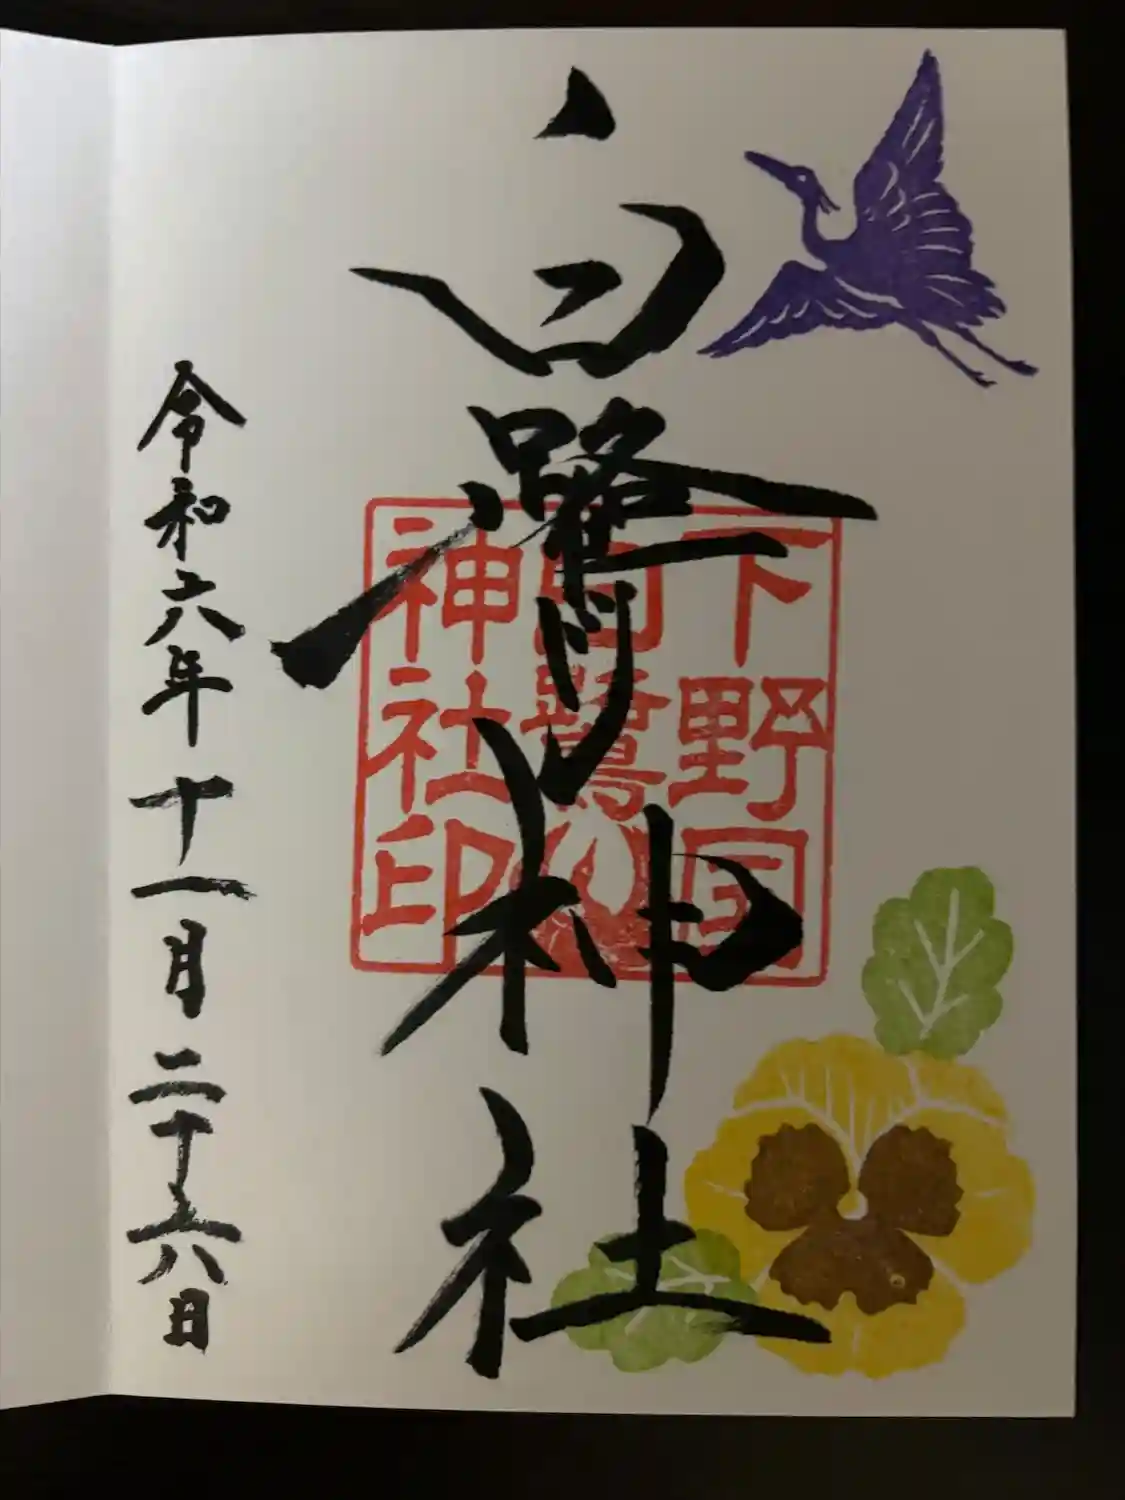 白鷺神社
下野国
白鷺
神社印
令和六年十一月二十六日